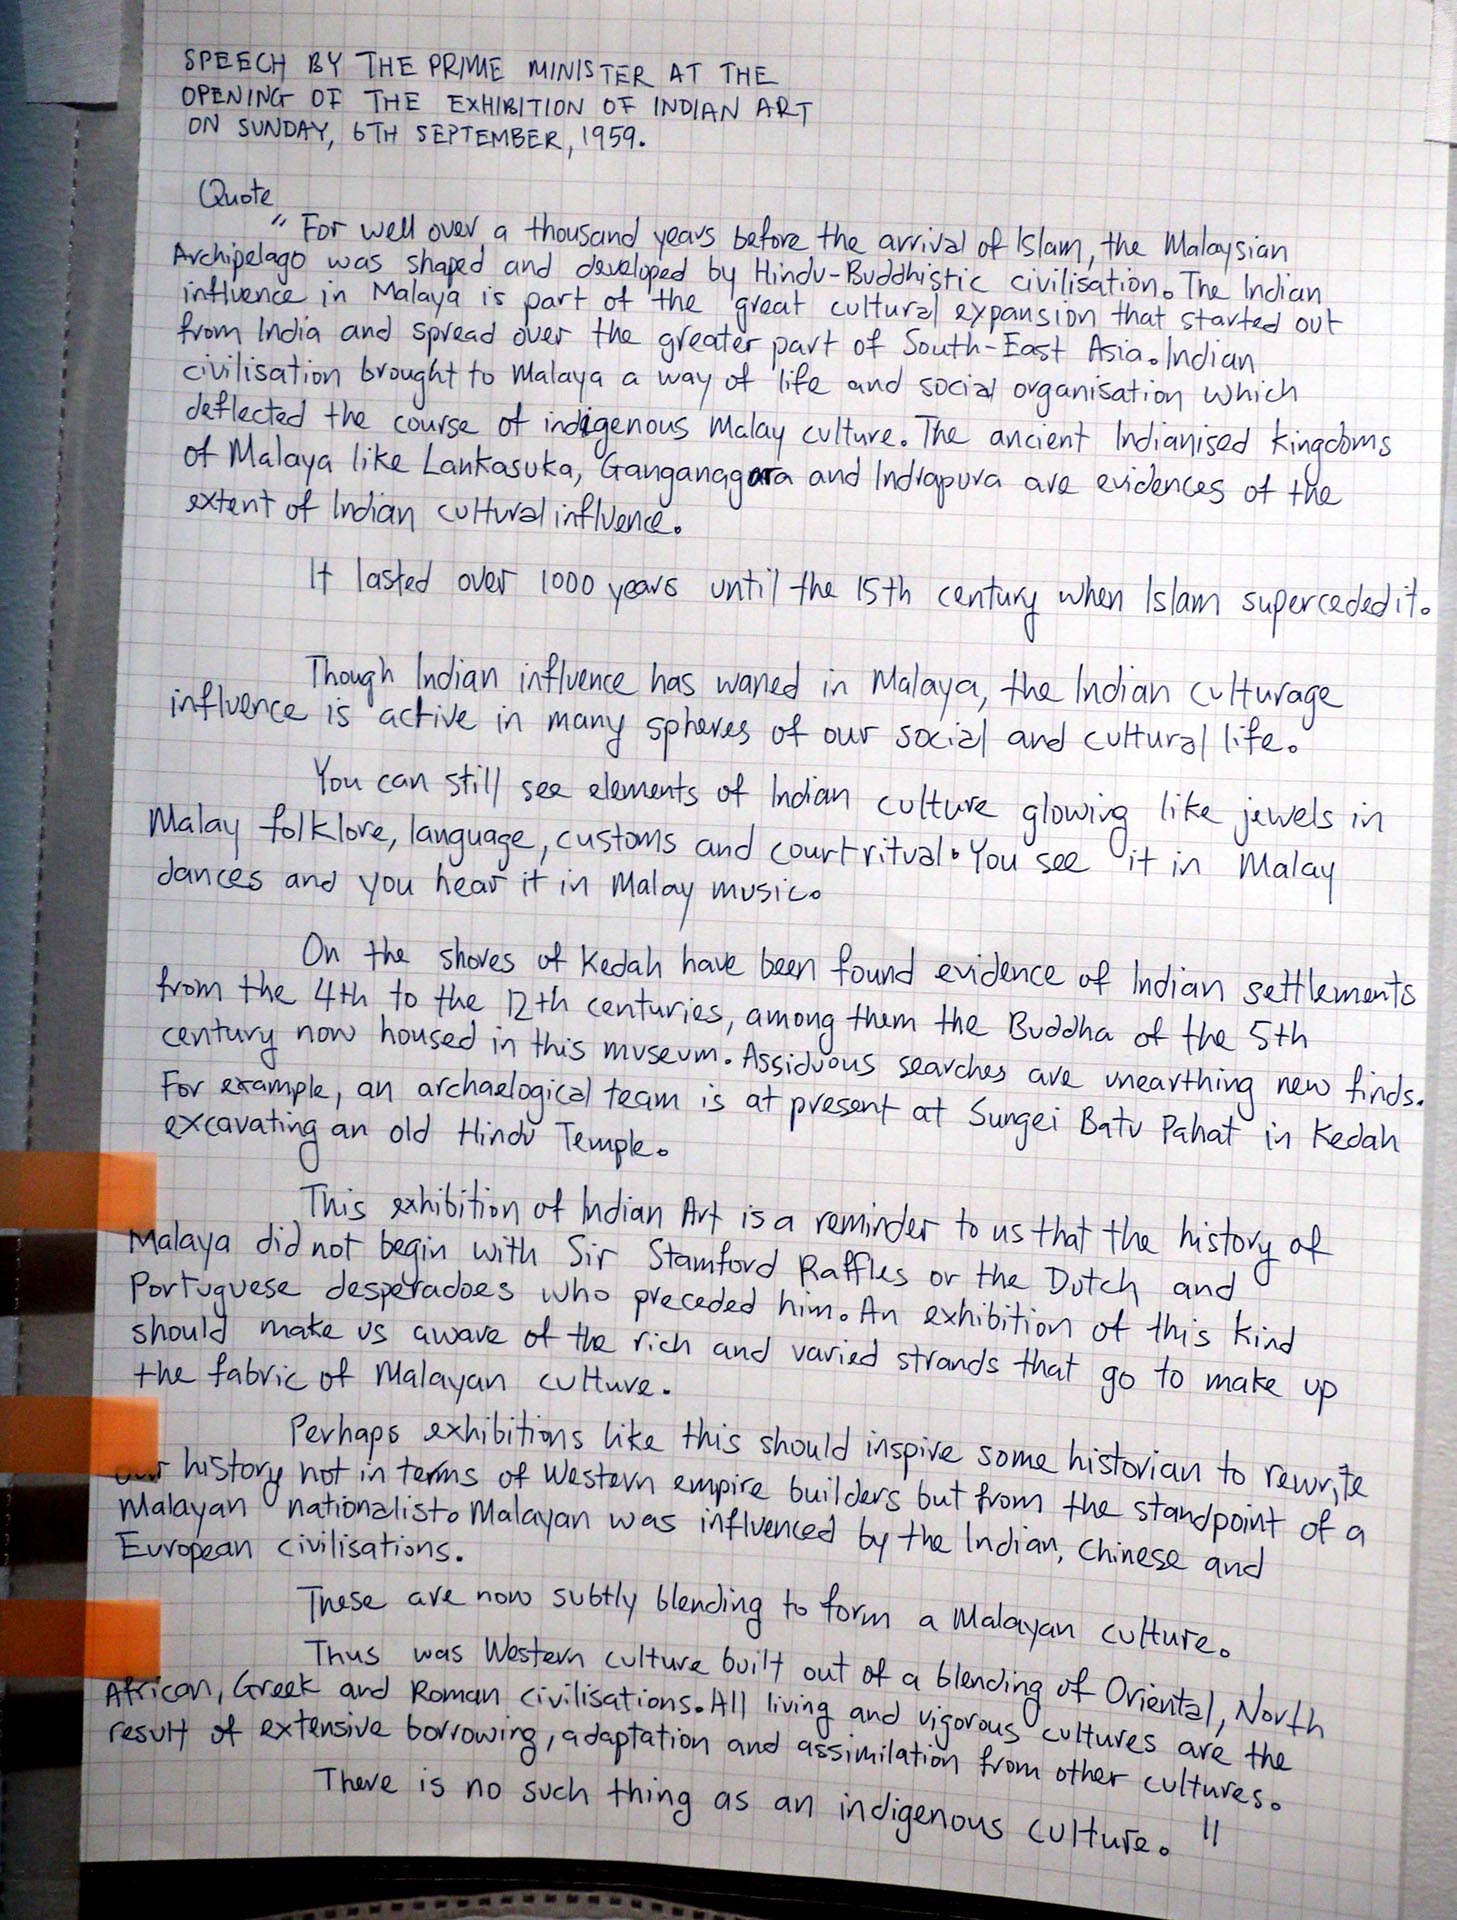 SPEECH BY THE PRIME MINISTER AT THE
OPENING OF THE EXHIBITION OF INDIAN ART
ON SUNDAY, 6TH SEPTEMBER, 1959.
Quote
" For well over a thousand years before the arrival of Islam, the Malaysian
Archipelago was shaped and developed by Hindu-Buddhistic civilisation. The Indian
influence in Malaya is part of the great cultural expansion that started out
from India and spread over the greater part of South-East Asia. Indian
civilisation brought to Malaya a way of life and social organisation which
deflected the course of indigenous Malay culture. The ancient Indianised kingdoms
of Malaya like Lankasuka, Ganganagara and Indrapura are evidences of the
extent of Indian cultural influence.
It lasted over 1000 years until the 15th century when Islam superceded it.
Though Indian influence has waned in Malaya, the Indian culturage
influence is active in many spheres of our social and cultural life.
You can still see elements of Indian culture glowing like jewels in
Malay folklore, language, customs and court ritual. You see it in Malay
dances and you hear it in Malay music.
On the shores of Kedah have been found evidence of Indian settlements
from the 4th to the 12th centuries, among them the Buddha of the 5th
century now housed in this museum. Assiduous searches are unearthing new finds.
For example, an archaelogical team is at present at Sungei Batu Pahat in Kedah
excavating an old Hindu Temple.
This exhibition of Indian Art is a reminder to us that the history of
Malaya did not begin with Sir Stamford Raffles or the Dutch and
Portuguese desperadoes who preceded him. An exhibition of this kind
should make us aware of the rich and varied strands that go to make up
the fabric of Malayan culture.
Perhaps exhibitions like this should inspire some historian to rewrite
our history not in terms of Western empire builders but from the standpoint of a
Malayan nationalist. Malayan was influenced by the Indian, Chinese and
European civilisations.
These are now subtly blending to form a Malayan culture.
Thus was Western culture built out of a blending of Oriental, North
African, Greek and Roman civilisations. All living and vigorous cultures are the
result of extensive borrowing, adaptation and assimilation from other cultures.
There is no such thing as an indigenous culture. "